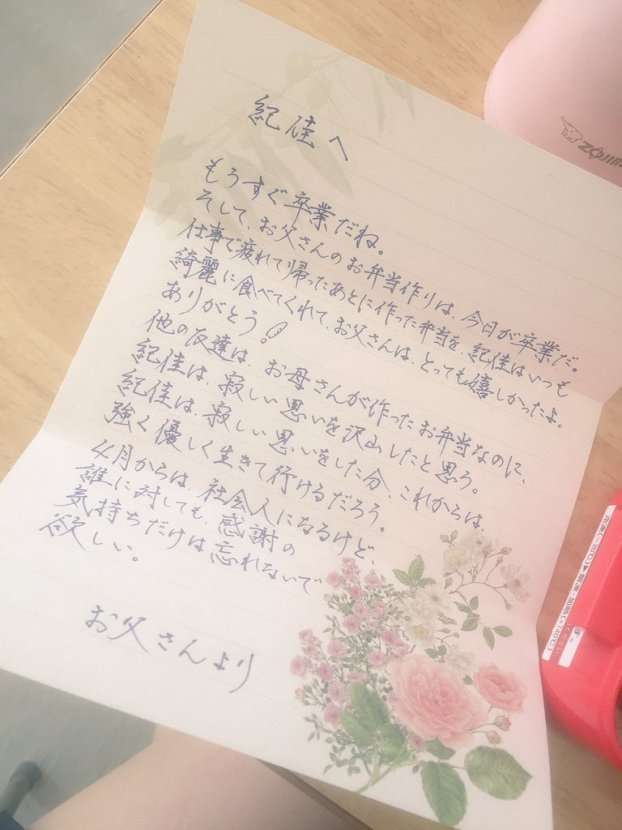 紀佳へ
もうすぐ卒業だね。
そして、お父さんのお弁当作りは、今日が卒業だ。
仕事で疲れて帰ったあとに作った弁当を、紀佳はいつも
綺麗に食べてくれて、お父さんは、とっても嬉しかったよ。
ありがとう!
他の友達は、お母さんが作ったお弁当なのに、
紀佳は、寂しい思いを沢山したと思う。
紀佳は、寂しい思いをした分、これからは、
強く優しく生きて行けるだろう。
4月からは、社会人になるけど、
誰に対しても、感謝の
気持ちだけは忘れないで
欲しい。
お父さんより
ZOJI